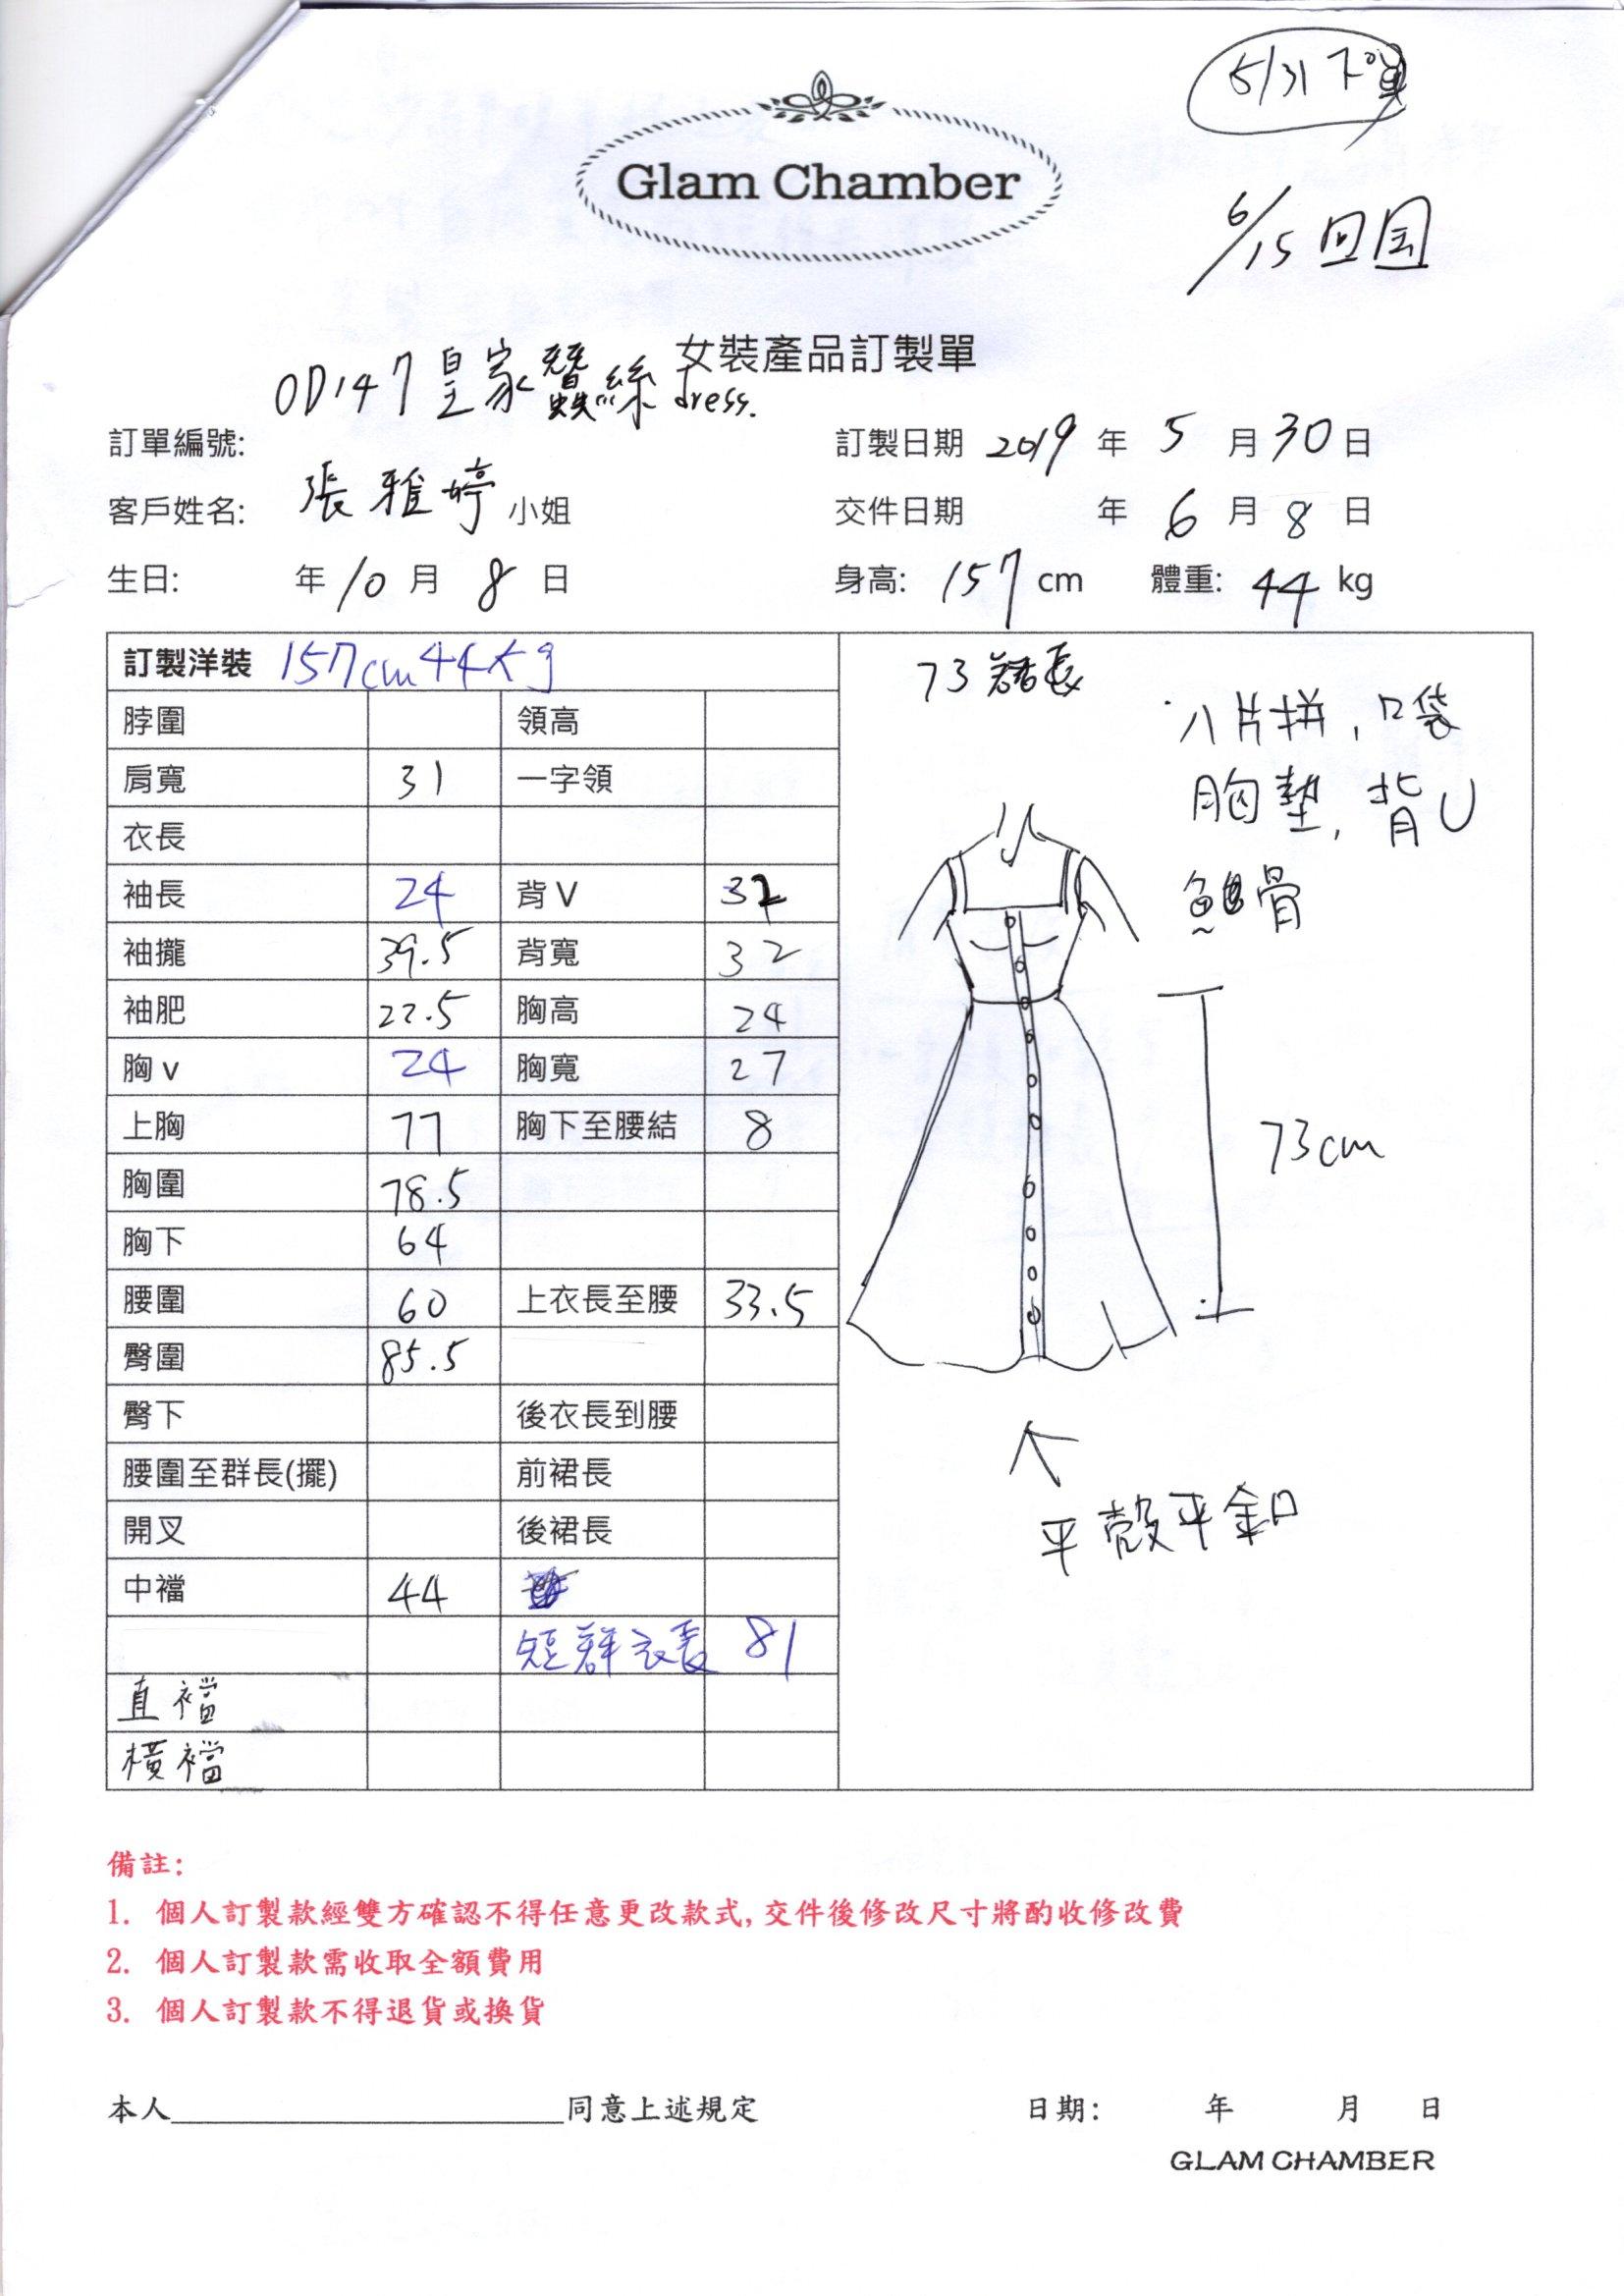 5/31下單
Glam Chamber
6/15 回国
女裝產品訂製單
OD147皇家蠶絲 dress.
訂單編號:
訂製日期 2019 年 5 月 30 日
客戶姓名: 張雅婷 小姐
交件日期 年 6 月 8 日
生日: 年 10 月 8 日
身高: 157 cm 體重: 44 kg
訂製洋裝 157cm 44kg
脖圍 領高
肩寬 31 一字領
衣長
袖長 24 背V
袖攏 39.5 背寬 32
袖肥 22.5 胸高 24
胸v 24 胸寬 27
上胸 77 胸下至腰結 8
胸圍 78.5
胸下 64
腰圍 60 上衣長至腰 33.5
臀圍 85.5
臀下 後衣長到腰
腰圍至群長(擺) 前裙長
開叉 後裙長
中襠 44
短群衣長 81
直襠
橫襠
73裙長
八片拼,口袋
胸墊,背U
魚骨
73cm
平殼平釦
備註:
1. 個人訂製款經雙方確認不得任意更改款式,交件後修改尺寸將酌收修改費
2. 個人訂製款需收取全額費用
3. 個人訂製款不得退貨或換貨
本人____________________同意上述規定
日期: 年 月 日
GLAM CHAMBER